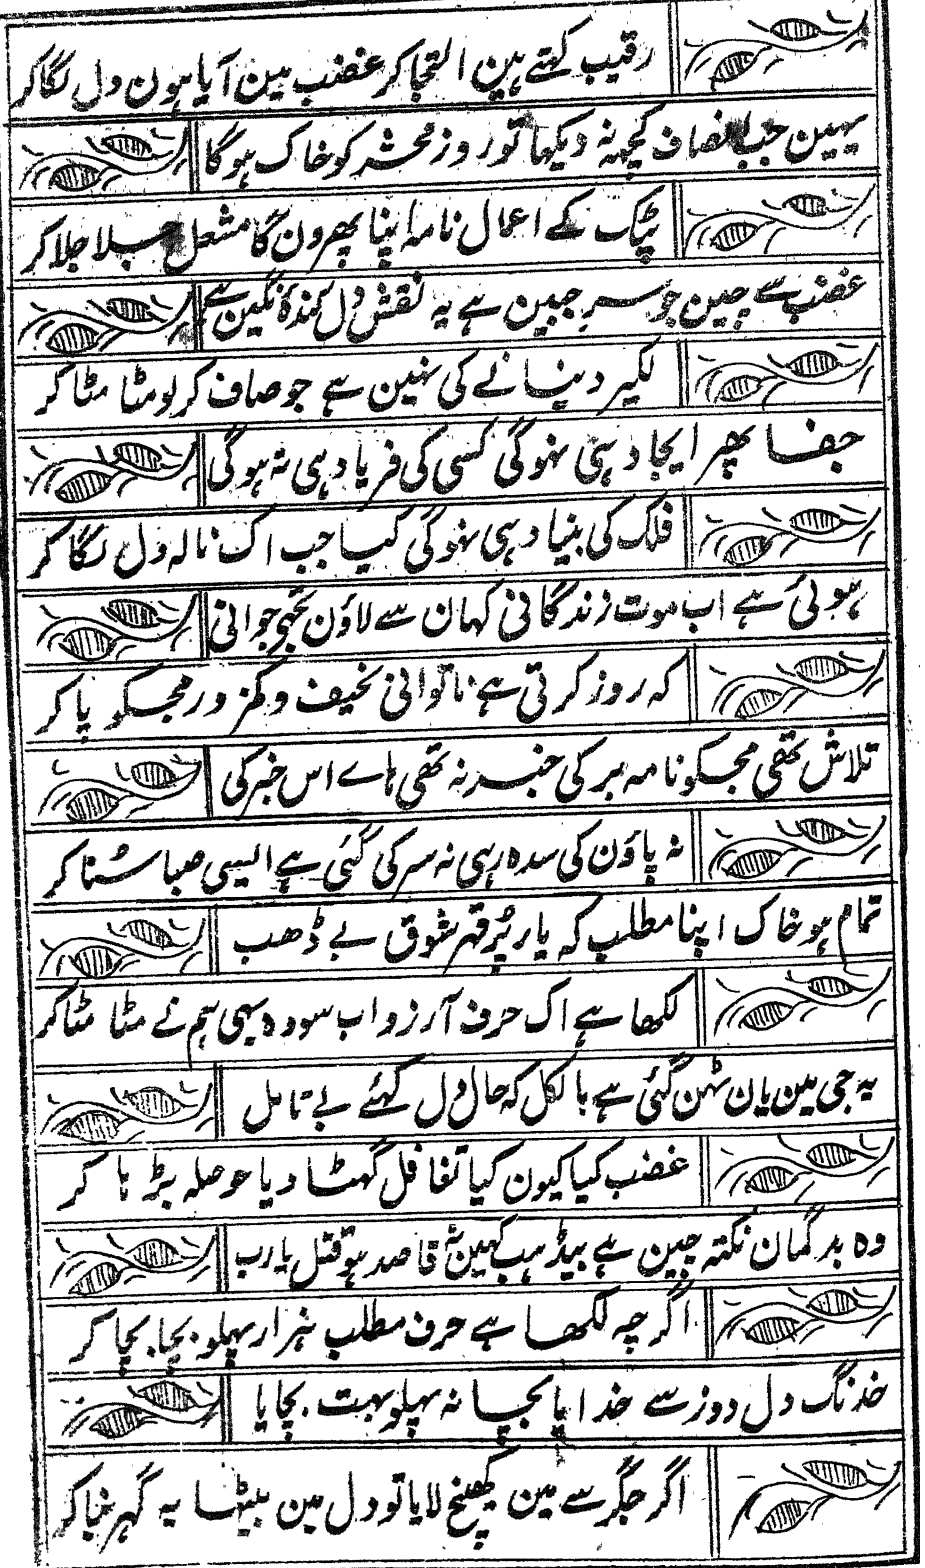 رقیب کہتے ہین التجا کر غضب مین آیا ہون دل لگا کر
یہین جب انصاف کچھہ نہ دیکھا تو روز محشر کو خاک ہوگا
پٹک کے اعمال نامہ اپنا پھرون گا مشعل جلا جلا کر
غضب سے چین جو سر جبین ہے یہ نقش دل کندۂ نگین ہے
لکیر دینا نے کی نہین ہے جو صاف کر لو مٹا مٹا کر
جفا پھر ایجاد ہی نہوگی کسی کی فریاد ہی نہ ہوگی
فلک کی بنیاد ہی نہوگی کیا جب اک نالہ دل لگا کر
ہوئی ہے اب موت زندگانی کہان سے لاؤن تجھے جوانی
کہ روز کرتی ہے ناتوانی نحیف و کمزور مجکو پا کر
تلاش تھی مجکو نامہ بر کی خبر نہ تھی ہاے اس خبر کی
نہ پاؤن کی سدہ رہی نہ سر کی گئی ہے ایسی صبا سُنا کر
تمام ہو خاک اپنا مطلب کہ یار پُر قہر شوق بے ڈھب
لکھا ہے اک حرف آرزو اب سو وہ بہی ہم نے مٹا مٹا کر
یہ جی مین یان ٹہن گئی ہے بالکل کہ حال دل کہئے بے تامل
غضب کیا کیون کیا تغافل گہٹا دیا حوصلہ بڑہا کر
وہ بدگمان نکتہ چین ہے بیڈہب کہین نہ قاصد ہو قتل یارب
اگرچہ لکھا ہے حرف مطلب ہزار پہلو بچا بچا کر
خدنگ دل دوز سے خدایا بچا نہ پہلو بہت بچایا
اگر جگر سے مین کھینچ لایا تو دل مین بیٹھا یہ گہر بنا کر